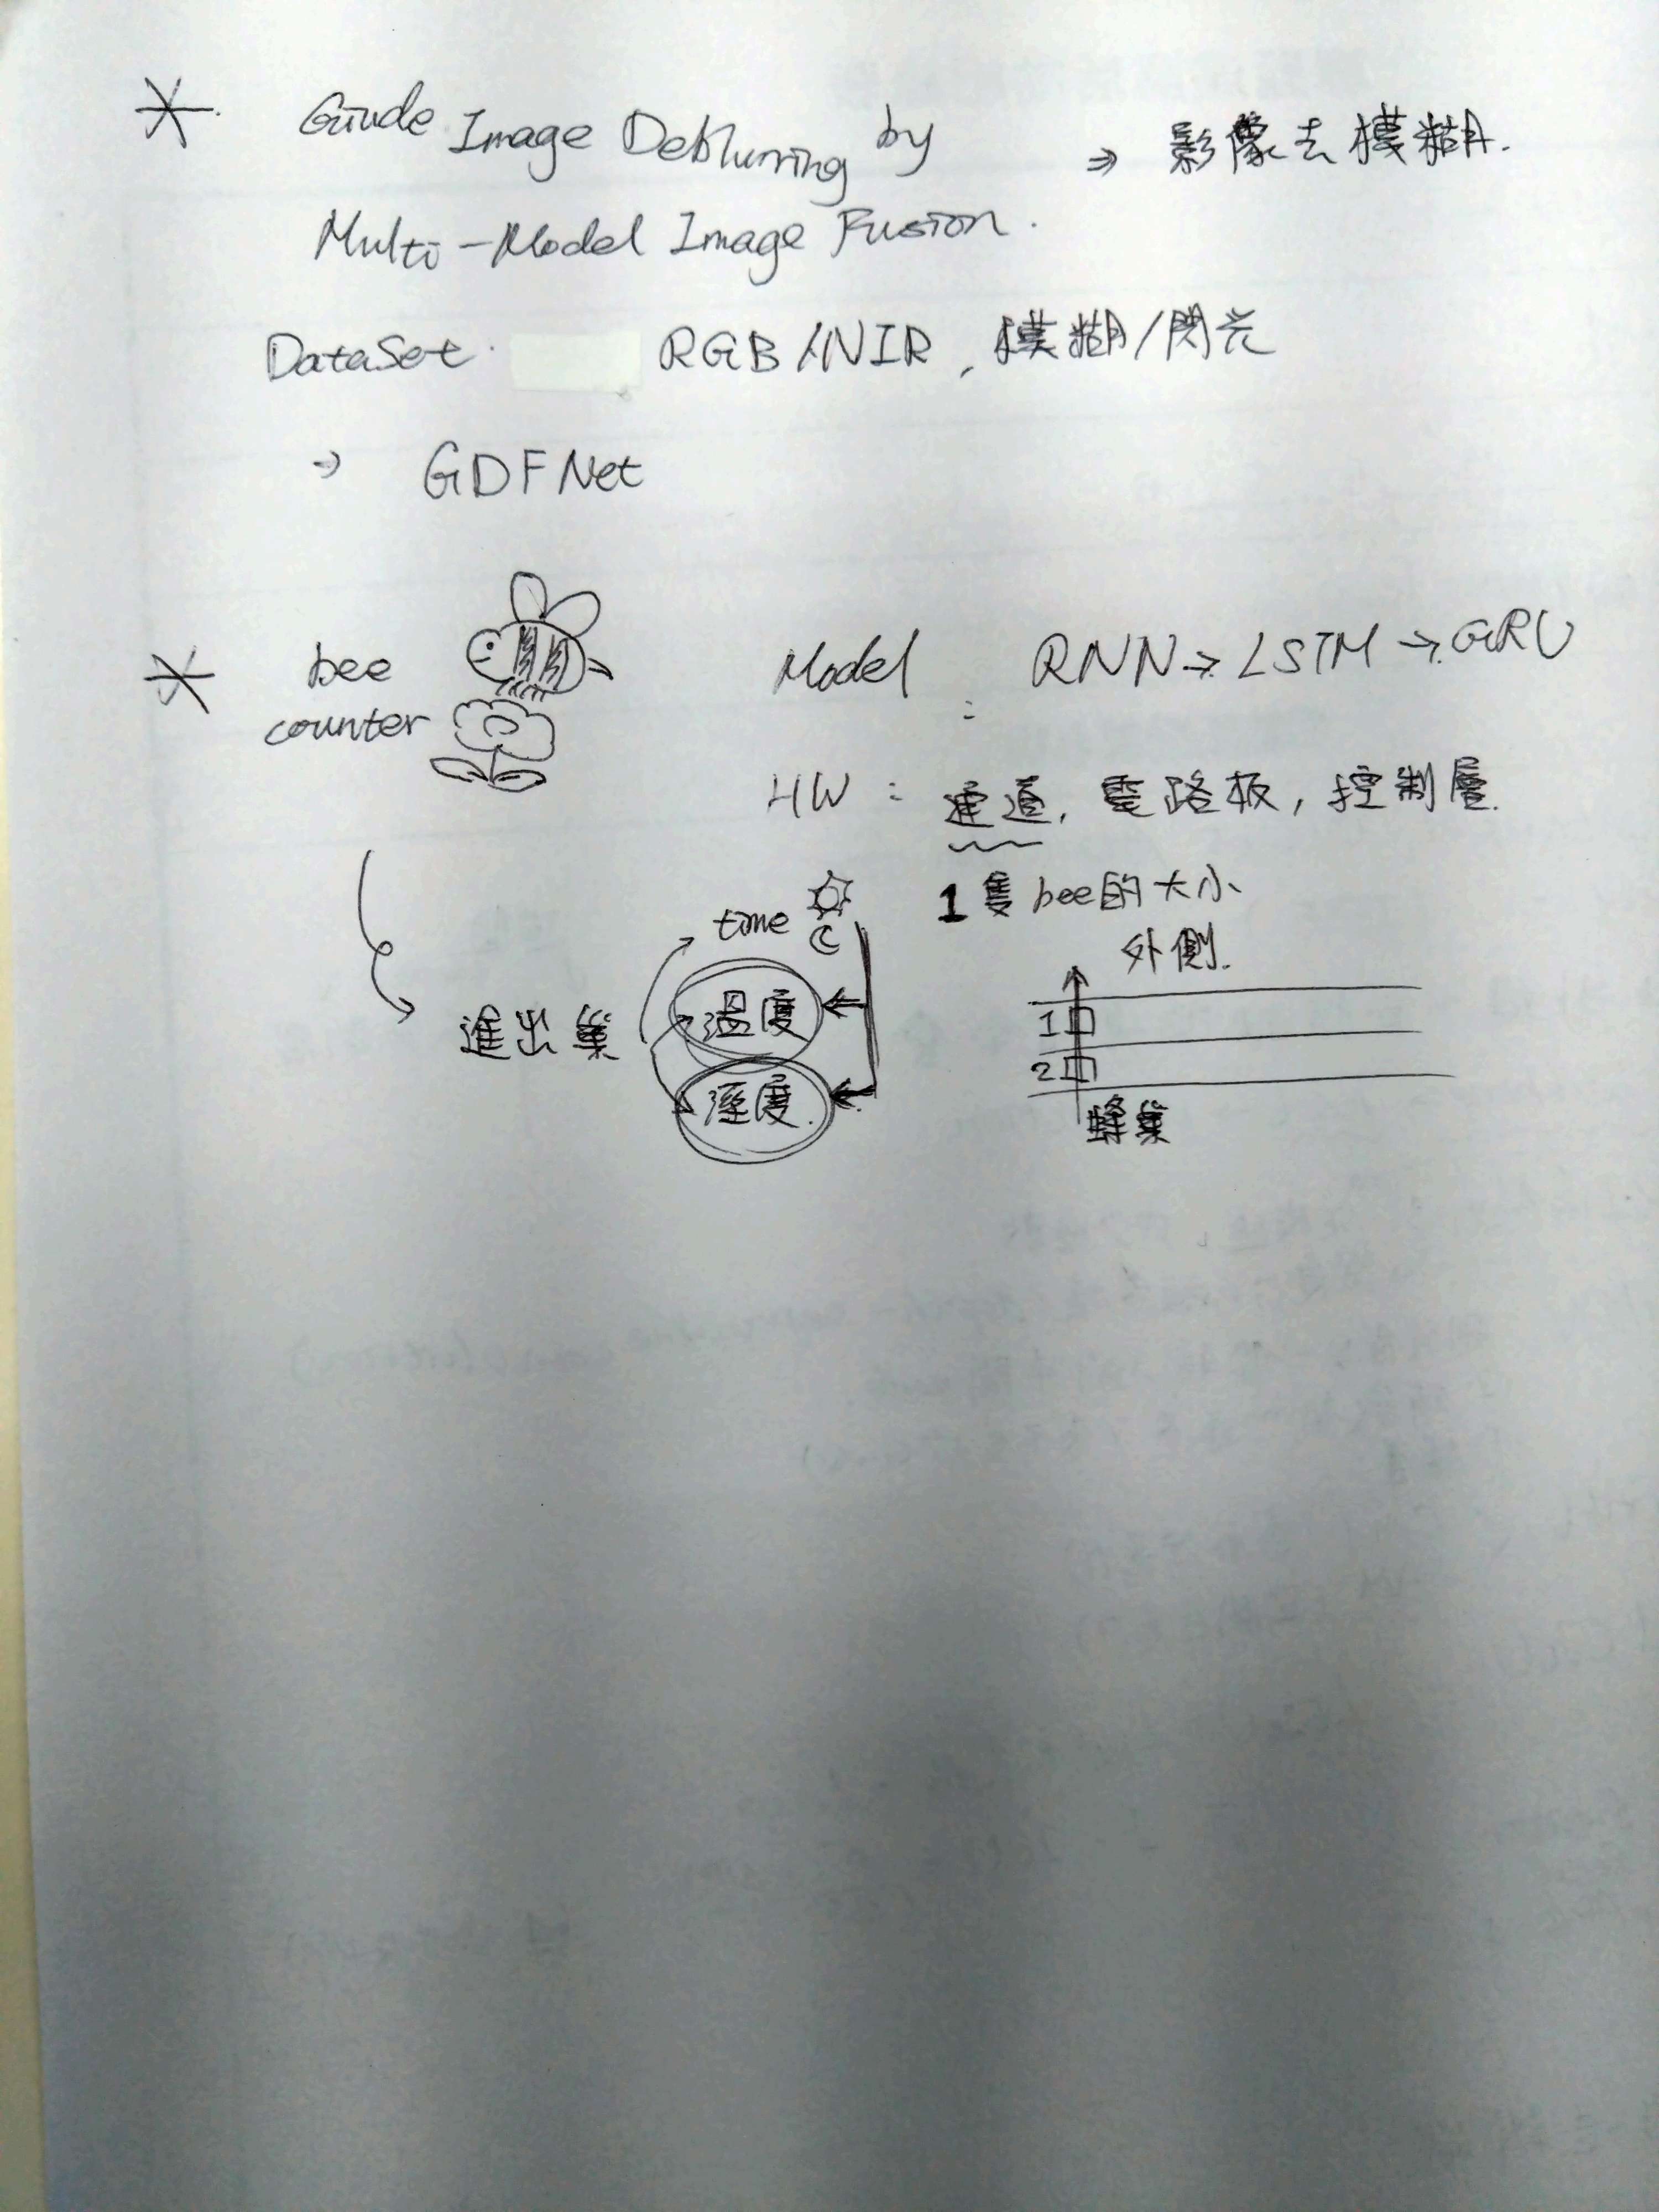 * Giude Image Deblurring by ⇒ 影像去模糊.
Multi-Model Image Fusion.
DataSet. RGB/NIR, 模糊/閃光
→ GDFNet
* bee counter
Model : RNN → LSTM → GRU
HW : 通道, 電路板, 控制層.
1隻bee的大小
time
進出巢
溫度
溼度.
外側.
1
2
蜂巢